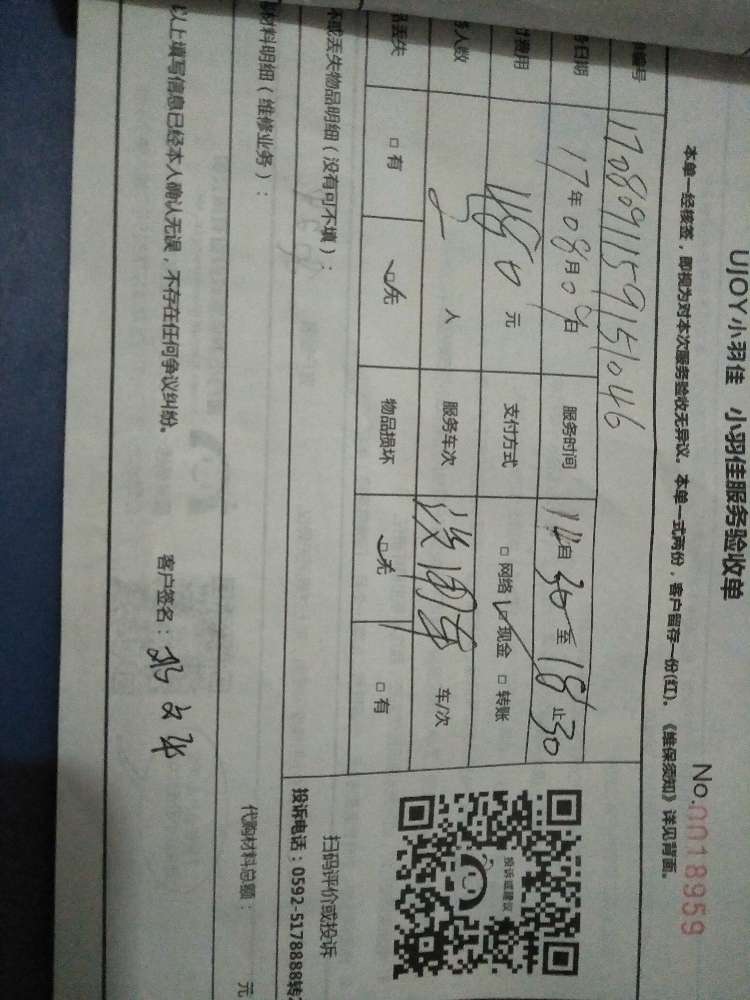 UJOY小羽佳 小羽佳服务验收单
No.0018959
本单一经核签，即视为对本次服务验收无异议。本单一式两份，客户留存一份(红)。《维保须知》详见背面。
编号 1708091159151046
日期 17年08月09日 服务时间 14自30至18止30
费用 480元 支付方式 □网络 ☑现金 □转账
人数 2人 服务车次 没用车 车/次
品丢失 □有 ☑无 物品损坏 ☑无 □有
坏或丢失物品明细（没有可不填）：
材料明细（维修业务）：
代购材料总额： 元
以上填写信息已经本人确认无误，不存在任何争议纠纷。
客户签名：
投诉或建议
扫码评价或投诉
投诉电话：0592-5178888转